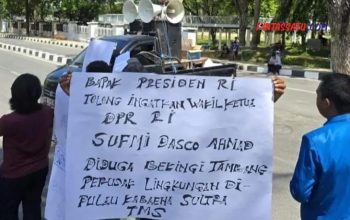 KARTASSATU.COM
BAPAK PRESIDEN RI
TOLONG INGATKAN WAKIL KETUA
DPR RI
SUFMI DASCO AHMAD
DIDUGA BEKINGI TAMBANG
PERUSAK LINGKUNGAN DI-
PULAU KABAENA SULTRA
TMS